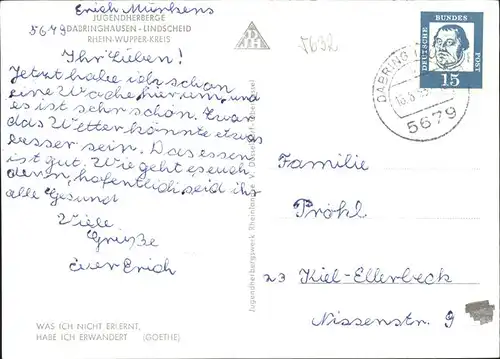 Erich Mürkens
JUGENDHERBERGE
5679 DABRINGHAUSEN - LINDSCHEID
RHEIN-WUPPER-KREIS
Ihr Lieben!
Jetzt habe ich schon
eine Woche hier um, und
es ist sehr schön. Zwar
das Wetter könnte etwas
besser sein. Das essen
ist gut. Wie geht es euch
denn, hofentlich seid ihr
alle Gesund
Viele
Grüße
euer Erich
WAS ICH NICHT ERLERNT,
HABE ICH ERWANDERT (GOETHE)
Jugendherbergswerk Rheinland
DJH
5632
DEUTSCHE BUNDES POST
15
DABRING
5679
Familie
Pröhl
23 Kiel-Ellerbeck
Nissenstr. 9